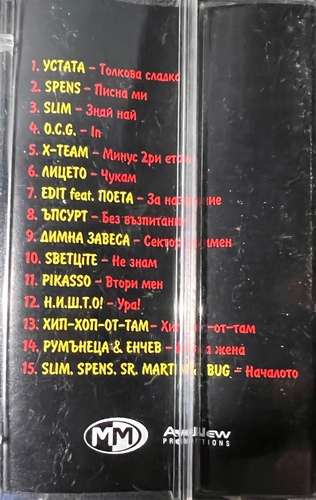 1. УСТАТА – Толкова сладко
2. SPENS – Писна ми
3. SLIM – Знай най
4. O.C.G. – In
5. X-TEAM – Минус 2ри
6. ЛИЦЕТО – Чукам
7. EDIT feat. ПОЕТА – За
8. ЪПСУРТ – Без възпитание
9. ДИМНА ЗАВЕСА – Сектор
10. SВЕТЦИТЕ – Не знам
11. PIKASSO – Втори мен
12. Н.И.Ш.Т.О! – Ура!
13. ХИП-ХОП-ОТ-ТАМ – -от-там
14. РУМЪНЕЦА & ЕНЧЕВ – жена
15. SLIM, SPENS, SR. BUG – Началото
MM
PRODUCTIONS